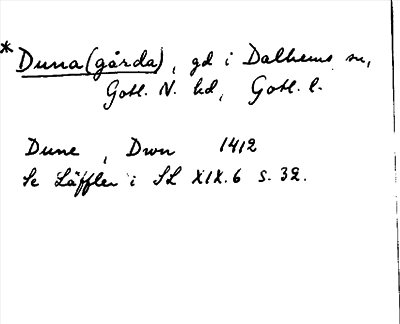 *Duna (gårda), gd i Dalhems sn,
Gotl. N. hd, Gotl. l.
Dune, Dwn 1412
Se Läffler i SL XIX.6 s. 32.